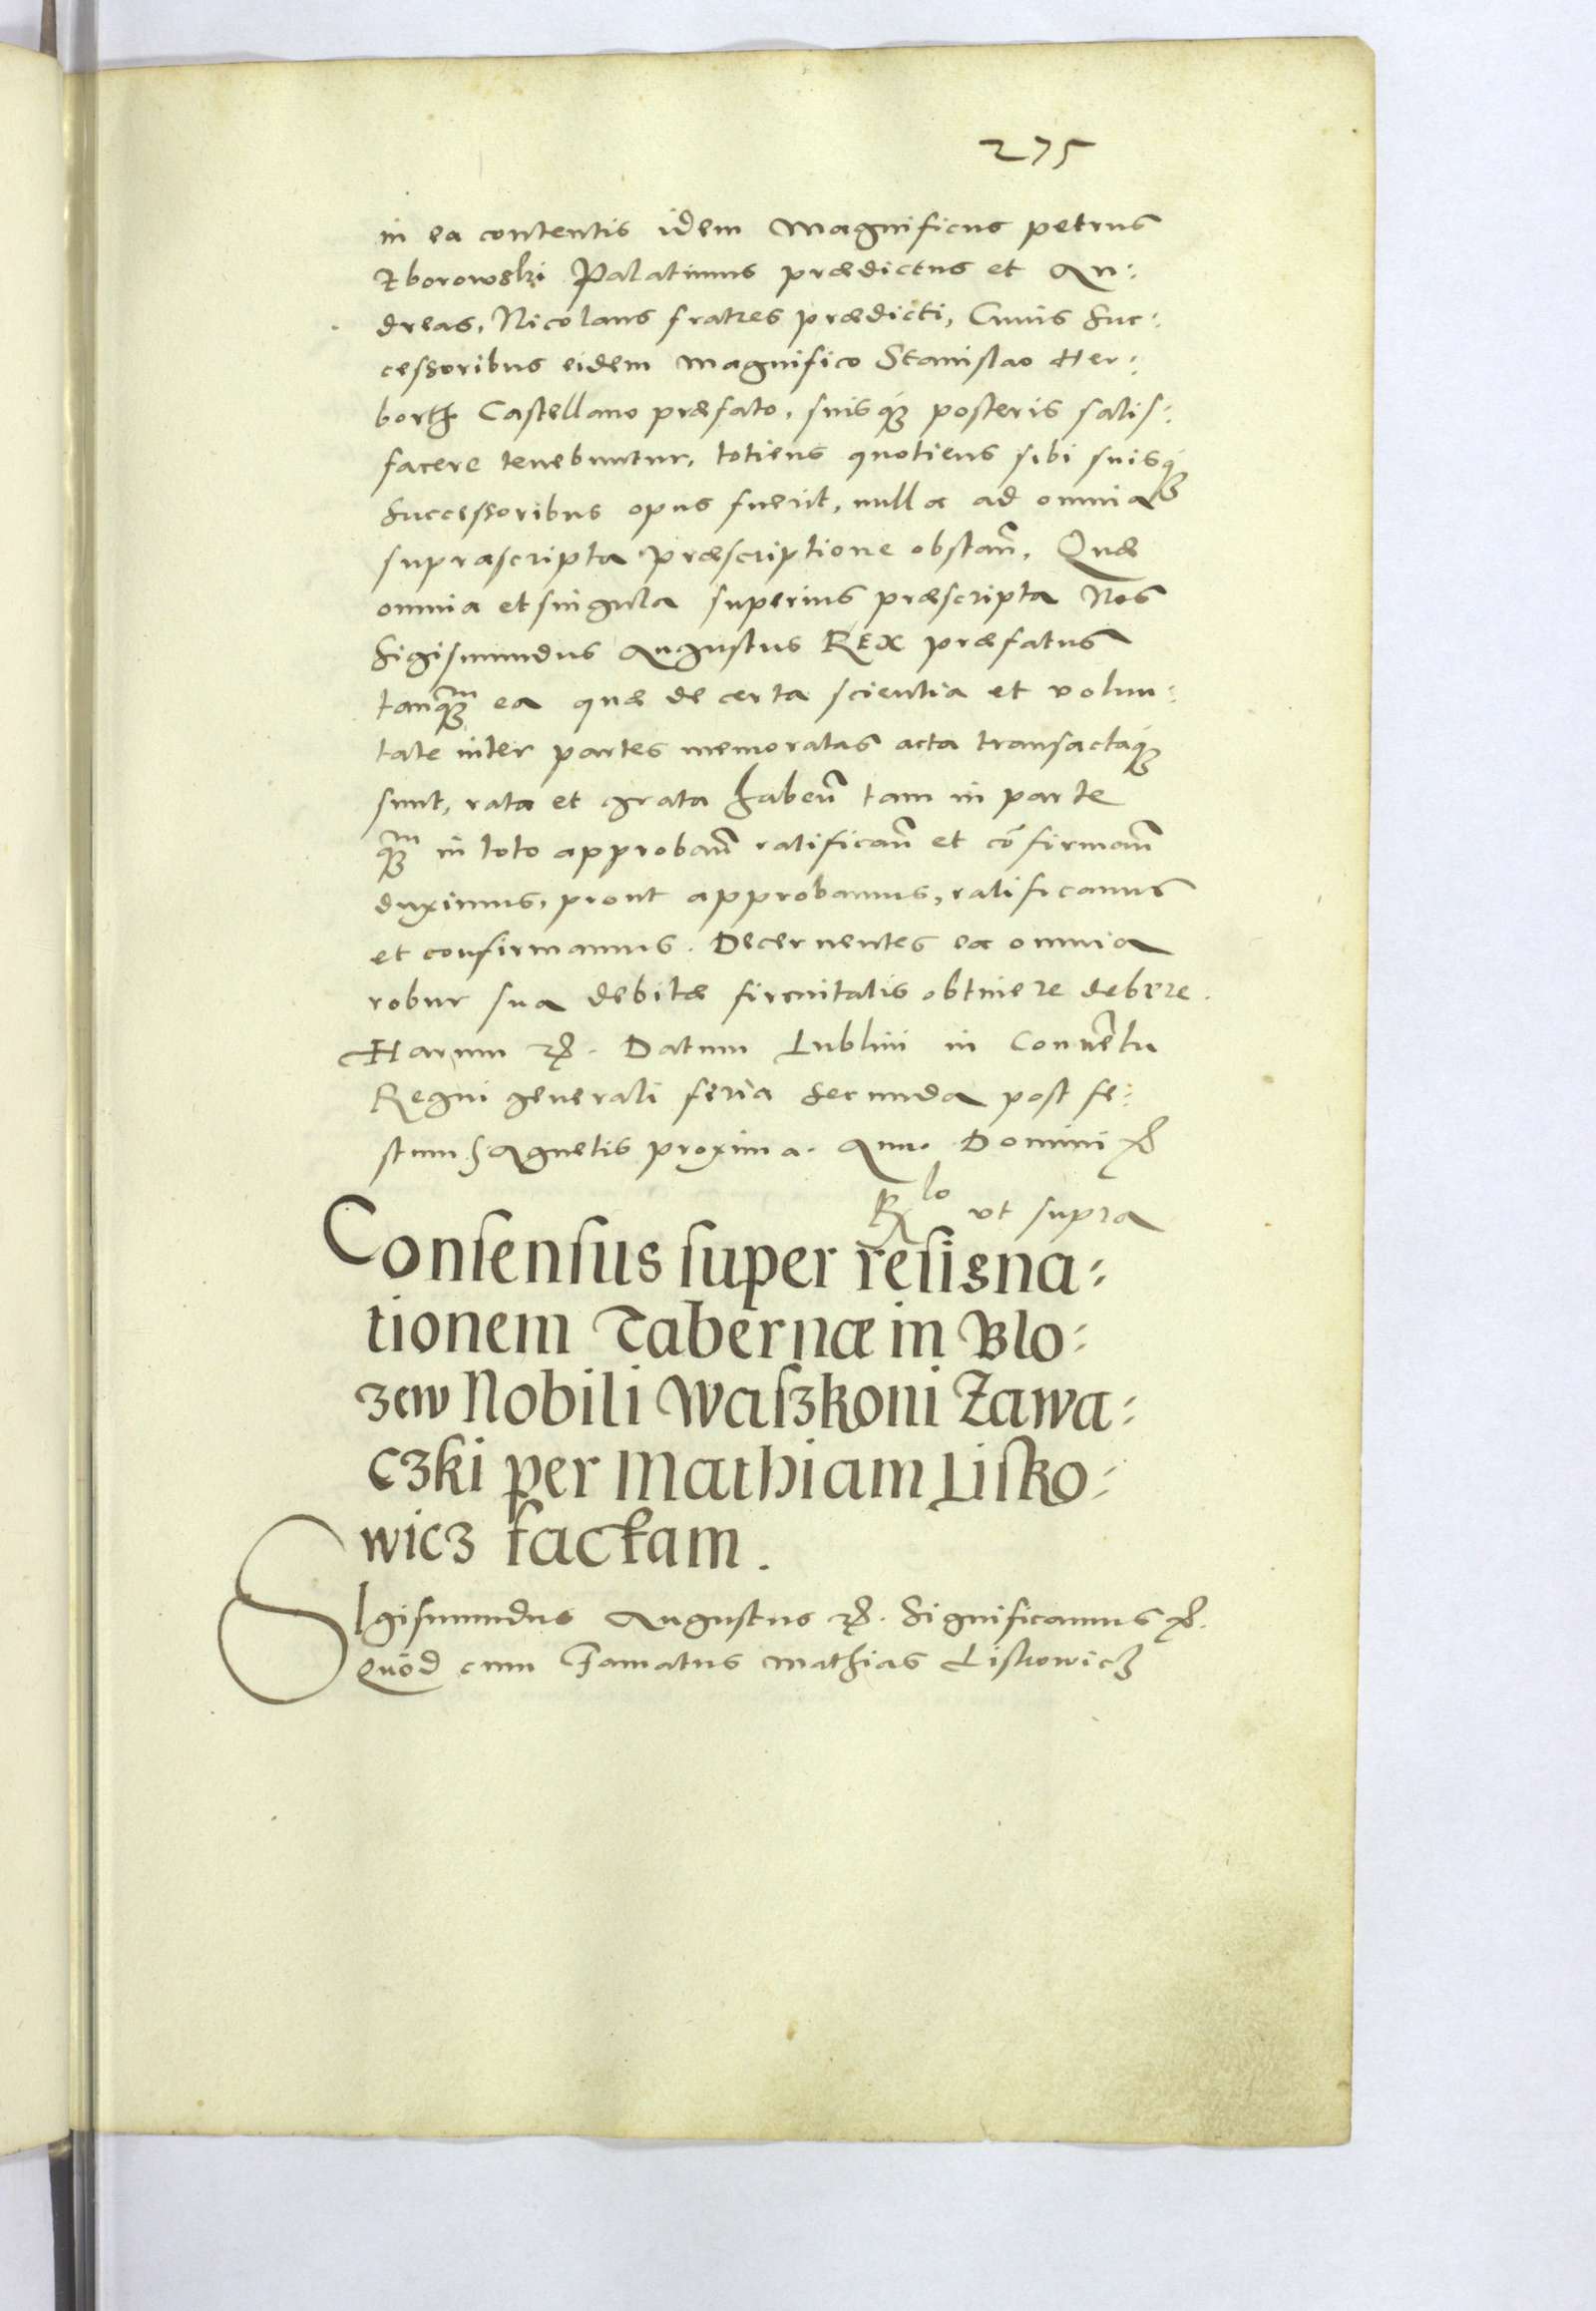 275
in ea contentis idem Magnificus petrus
Zborowski Palatinus prædictus et An:
dreas, Nicolaus fratres prædicti, Cum suis suc:
cessoribus eidem magnifico Stanislao Her:
borth Castellano præfato, suisq; posteris satis:
facere tenebuntur, totiens quotiens sibi suisq;
successoribus opus fuerit, nulla ad omnia
suprascripta præscriptione obstan̄. Quæ
omnia et singula superius præscripta Nos
Sigismundus Augustus REX præfatus
tanq;m ea quæ de certa scientia et volun:
tate inter partes memoratas acta transactaq;
sunt, rata et grata haben̄ tam in parte
q;m in toto approban̄ ratifican̄ et cōfirman̄
duximus, prout approbamus, ratificamus
et confirmamus. Decernentes ea omnia
robur sua debitæ firmitatis obtinere debere.
Harum etc. Datum Lublini in Conventu
Regni generali feria secunda post fe:
stum S Agnetis proxima. Anno Domini etc
Rlo vt supra
Consensus super resigna:
tionem Tabernæ in Blo:
zew Nobili Waszkoni Zawa:
czki per Mathiam Lisko:
wicz factam.
SIgismundus Augustus etc. Significamus etc.
Quod cum Famatus Mathias Liskowicz